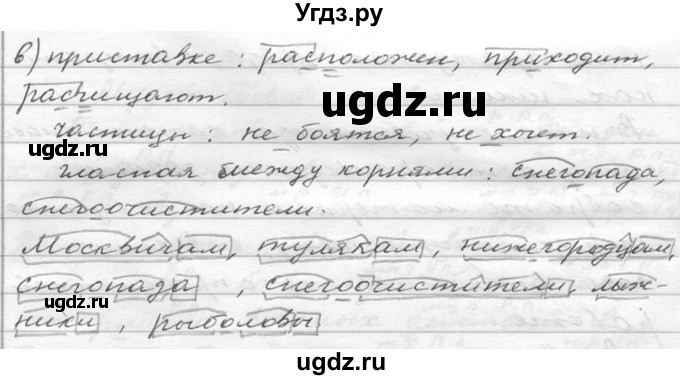 Угдз.ру
в) приставке: расположен, приходит,
расчищают.
ugdz.ru
частицы: не боятся, не хочет.
ugdz.ru
гласная между корнями: снегопада,
снегоочистители.
Москвичам, тулякам, нижегородцам,
снегопада, снегоочистители, лыж-
ugdz.ru
ники, рыболовы
ugdz.ru
ugdz.ru